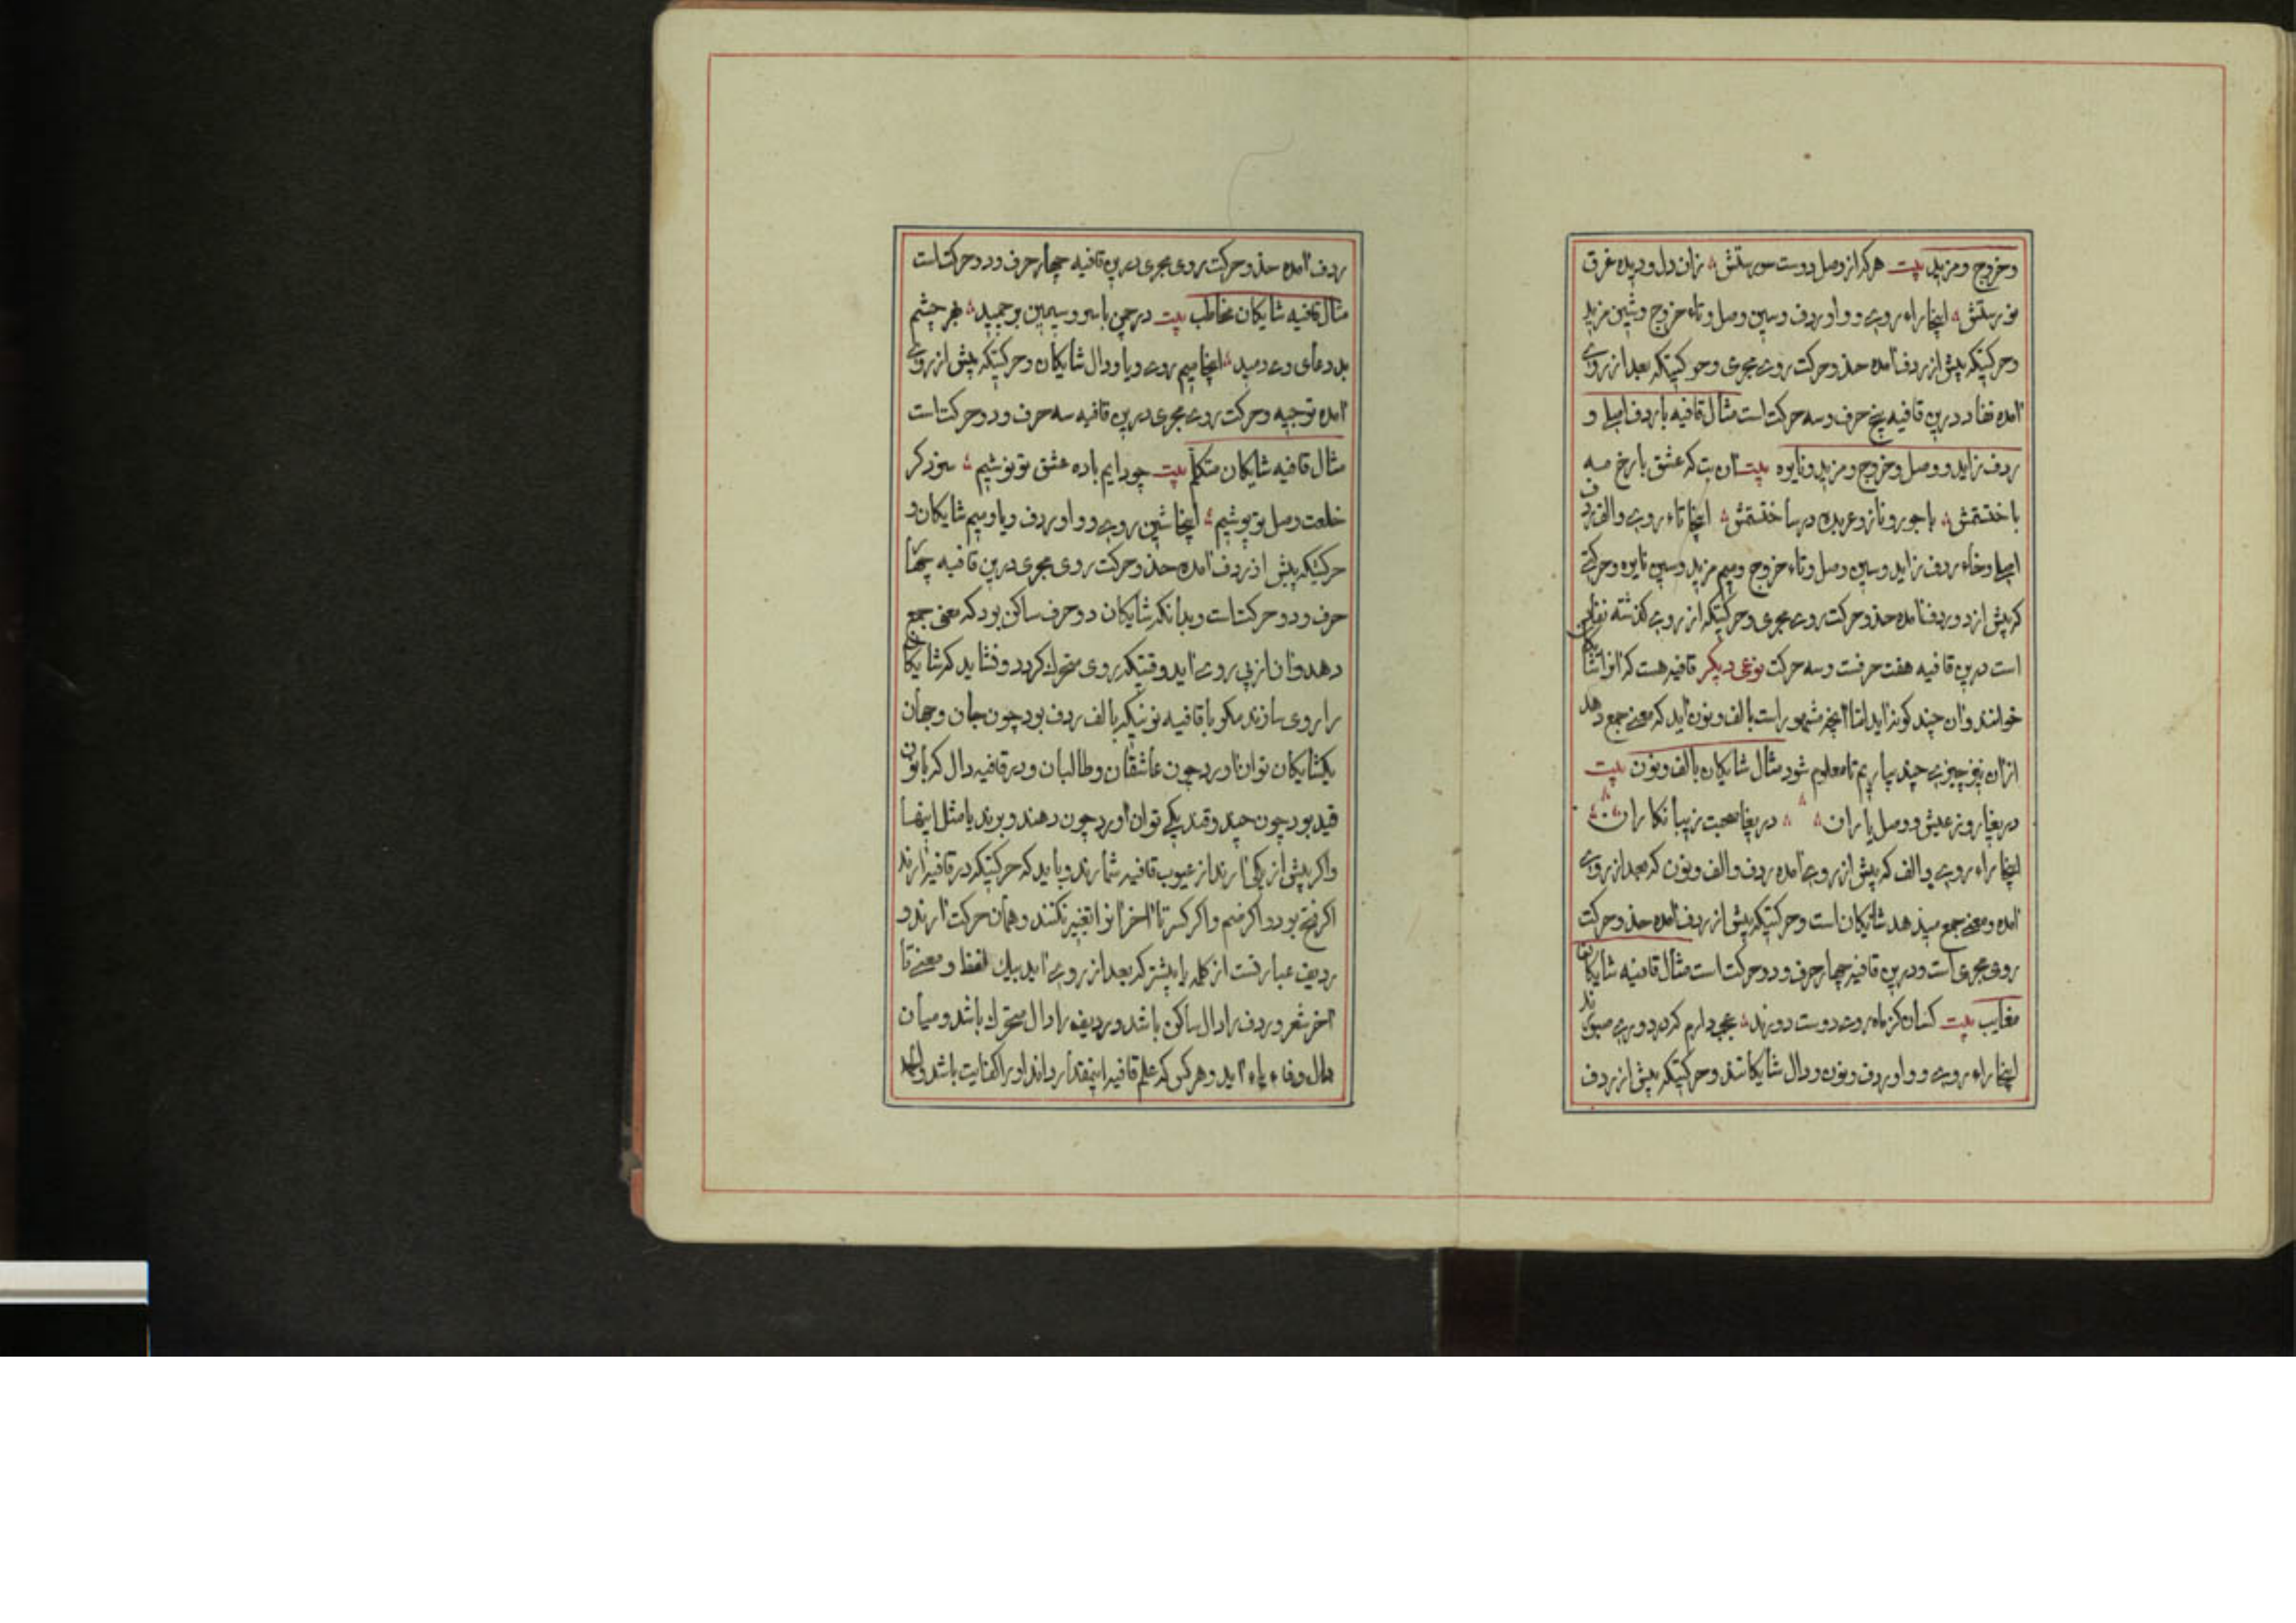 وخروج ومزید بیت هرکرا از وصل دوست سورستش زان دل و دیده غرق
نورستش اینجا راء روی و واو ردف وسین وصل وتاء خروج وشین مزید
وحرکتیکه پیش از ردف آمده حذو حرکت روی مجری وحرکتیکه بعد از روی
آمده نفاد درین قافیه پنج حرف وسه حرکت است مثال قافیه با ردف اصلی و
ردف زاید و وصل وخروج ومزید ونایره بیت آن بت که عشق با رخ مه
باختستمش با جور و ناز و عربده درساختستمش اینجا تاء روی والف ردف
اصلی وخاء ردف زاید وسین وصل وتاء خروج ومیم مزید وشین نایره وحرکتی
که پیش از دو ردف آمده حذو حرکت روی مجری وحرکتیکه از روی گذشته نفاد
است درین قافیه هفت حرفست وسه حرکت نوعی دیگر قافیه هست که آنرا شایکان
خوانند وآن چند کونه آید امّا آنچه مشهور است با الف ونون آید که معنی جمع دهد
ازان نیز چیزی چند بیاریم تا معلوم شود مثال شایکان با الف ونون بیت
دریغا روز عیش و وصل یاران دریغا صحبت زیبا نکاران
اینجا راء روی والف که پیش از روی آمده ردف والف ونون که بعد از روی
آمده ومعنی جمع میدهد شایکان است وحرکتیکه پیش از ردف آمده حذو حرکت
روی مجری است ودرین قافیه چهار حرف ودو حرکت است مثال قافیه شایکان
مغایب بیت کسان کز ماه روی دوست دورند عجب دارم کزین دوری صبورند
اینجا راء روی و واو ردف ونون ودال شایکانند وحرکتیکه پیش از ردف
ردف آمده حذو حرکت روی مجری درین قافیه چهار حرف ودو حرکت است
مثال قافیه شایکان مخاطب بیت در چمن با سرو سیمین بر چمید بهر چشم
بد دعای وی دمید اینجا میم روی ویا ودال شایکان وحرکتیکه پیش از روی
آمده توجیه وحرکت روی مجری درین قافیه سه حرف ودو حرکت است
مثال قافیه شایکان متکلم بیت چو دایم باده عشق تو نوشیم سزد کر
خلعت وصل تو پوشیم اینجا شین روی و واو ردف ویا ومیم شایکان و
حرکتیکه پیش از ردف آمده حذو حرکت روی مجری درین قافیه چهار
حرف ودو حرکت است وبدانکه شایکان دو حرف ساکن بود که معنی جمع
دهد وآن از پی روی آید وقتیکه روی متحرك کردد ونشاید که شایکان
را روی سازند مکر با قافیه نونیکه با الف ردف بود چون جان وجهان
یکشایکان توان آورد چون عاشقان وطالبان ودر قافیه دال که با نون
قید بود چون چند وقند یکی توان آورد چون دهند وبرند یا مثل اینها
واکر پیش از یکی آرند از عیوب قافیه شمارند وباید که حرکتیکه در قافیه آرند
اکر فتح بود واکر ضم واکر کسر تا آخر آنرا تغییر نکنند وهمان حرکت آرند و
ردیف عبارتست از کلمه یا بیشتر که بعد از روی آید بیك لفظ ومعنی تا
آخر شعر وردف را دال ساکن باشد وردیف را دال متحرك باشد ومیان
دال وفاء یاء آید وهر کس که علم قافیه اینمقدار داند او را کفایت باشد والله